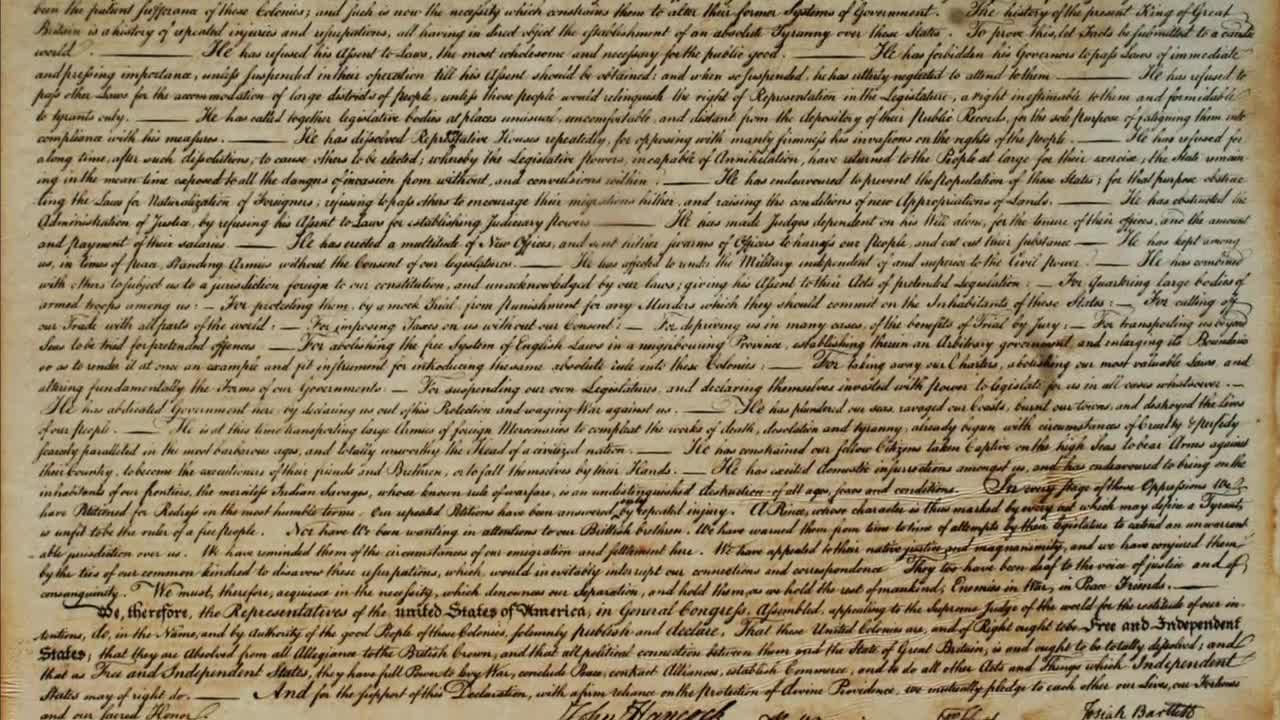 been the patient sufferance of these Colonies; and such is now the necessity which constrains them to alter their former Systems of Government. The history of the present King of Great
Britain is a history of repeated injuries and usurpations, all having in direct object the establishment of an absolute Tyranny over these States. To prove this, let Facts be submitted to a candid
world. —— He has refused his Assent to Laws, the most wholesome and necessary for the public good. —— He has forbidden his Governors to pass Laws of immediate
and pressing importance, unless suspended in their operation till his Assent should be obtained; and when so suspended, he has utterly neglected to attend to them. —— He has refused to
pass other Laws for the accommodation of large districts of people, unless those people would relinquish the right of Representation in the Legislature, a right inestimable to them and formidable
to tyrants only. —— He has called together legislative bodies at places unusual, uncomfortable, and distant from the depository of their Public Records, for the sole purpose of fatiguing them into
compliance with his measures. —— He has dissolved Representative Houses repeatedly, for opposing with manly firmness his invasions on the rights of the people. —— He has refused for
a long time, after such dissolutions, to cause others to be elected; whereby the Legislative powers, incapable of Annihilation, have returned to the People at large for their exercise; the State remain
ing in the mean time exposed to all the dangers of invasion from without, and convulsions within. —— He has endeavoured to prevent the population of these States; for that purpose obstruc
ting the Laws for Naturalization of Foreigners; refusing to pass others to encourage their migrations hither, and raising the conditions of new Appropriations of Lands. —— He has obstructed the
Administration of Justice, by refusing his Assent to Laws for establishing Judiciary powers. —— He has made Judges dependent on his Will alone, for the tenure of their offices, and the amount
and payment of their salaries. —— He has erected a multitude of New Offices, and sent hither swarms of Officers to harrass our people, and eat out their substance. —— He has kept among
us, in times of peace, Standing Armies without the Consent of our legislatures. —— He has affected to render the Military independent of and superior to the Civil power. —— He has combined
with others to subject us to a jurisdiction foreign to our constitution, and unacknowledged by our laws; giving his Assent to their Acts of pretended Legislation: — For Quartering large bodies of
armed troops among us: — For protecting them, by a mock Trial, from punishment for any Murders which they should commit on the Inhabitants of these States: — For cutting off
our Trade with all parts of the world: — For imposing Taxes on us without our Consent: — For depriving us in many cases, of the benefits of Trial by Jury: — For transporting us beyond
Seas to be tried for pretended offences — For abolishing the free System of English Laws in a neighbouring Province, establishing therein an Arbitrary government, and enlarging its Boundaries
so as to render it at once an example and fit instrument for introducing the same absolute rule into these Colonies: — For taking away our Charters, abolishing our most valuable Laws, and
altering fundamentally the Forms of our Governments: — For suspending our own Legislatures, and declaring themselves invested with power to legislate for us in all cases whatsoever. —
He has abdicated Government here, by declaring us out of his Protection and waging War against us. —— He has plundered our seas, ravaged our Coasts, burnt our towns, and destroyed the lives
of our people. —— He is at this time transporting large Armies of foreign Mercenaries to compleat the works of death, desolation and tyranny, already begun with circumstances of Cruelty & perfidy
scarcely paralleled in the most barbarous ages, and totally unworthy the Head of a civilized nation. —— He has constrained our fellow Citizens taken Captive on the high Seas to bear Arms against
their Country, to become the executioners of their friends and Brethren, or to fall themselves by their Hands. —— He has excited domestic insurrections amongst us, and has endeavoured to bring on the
inhabitants of our frontiers, the merciless Indian Savages, whose known rule of warfare, is an undistinguished destruction of all ages, sexes and conditions. In every stage of these Oppressions We
have Petitioned for Redress in the most humble terms: Our repeated Petitions have been answered only by repeated injury. A Prince, whose character is thus marked by every act which may define a Tyrant,
is unfit to be the ruler of a free people. Nor have We been wanting in attentions to our Brittish brethren. We have warned them from time to time of attempts by their legislature to extend an unwarrant
able jurisdiction over us. We have reminded them of the circumstances of our emigration and settlement here. We have appealed to their native justice and magnanimity, and we have conjured them
by the ties of our common kindred to disavow these usurpations, which, would inevitably interrupt our connections and correspondence They too have been deaf to the voice of justice and of
consanguinity. We must, therefore, acquiesce in the necessity, which denounces our Separation, and hold them, as we hold the rest of mankind, Enemies in War, in Peace Friends. ——
We, therefore, the Representatives of the united States of America, in General Congress, Assembled, appealing to the Supreme Judge of the world for the rectitude of our in-
tentions, do, in the Name, and by Authority of the good People of these Colonies, solemnly publish and declare, That these United Colonies are, and of Right ought to be Free and Independent
States; that they are Absolved from all Allegiance to the British Crown, and that all political connection between them and the State of Great Britain, is and ought to be totally dissolved; and
that as Free and Independent States, they have full Power to levy War, conclude Peace, contract Alliances, establish Commerce, and to do all other Acts and Things which Independent
States may of right do. —— And for the support of this Declaration, with a firm reliance on the Protection of divine Providence, we mutually pledge to each other our Lives, our Fortunes
and our sacred Honor.
John Hancock
Josiah Bartlett